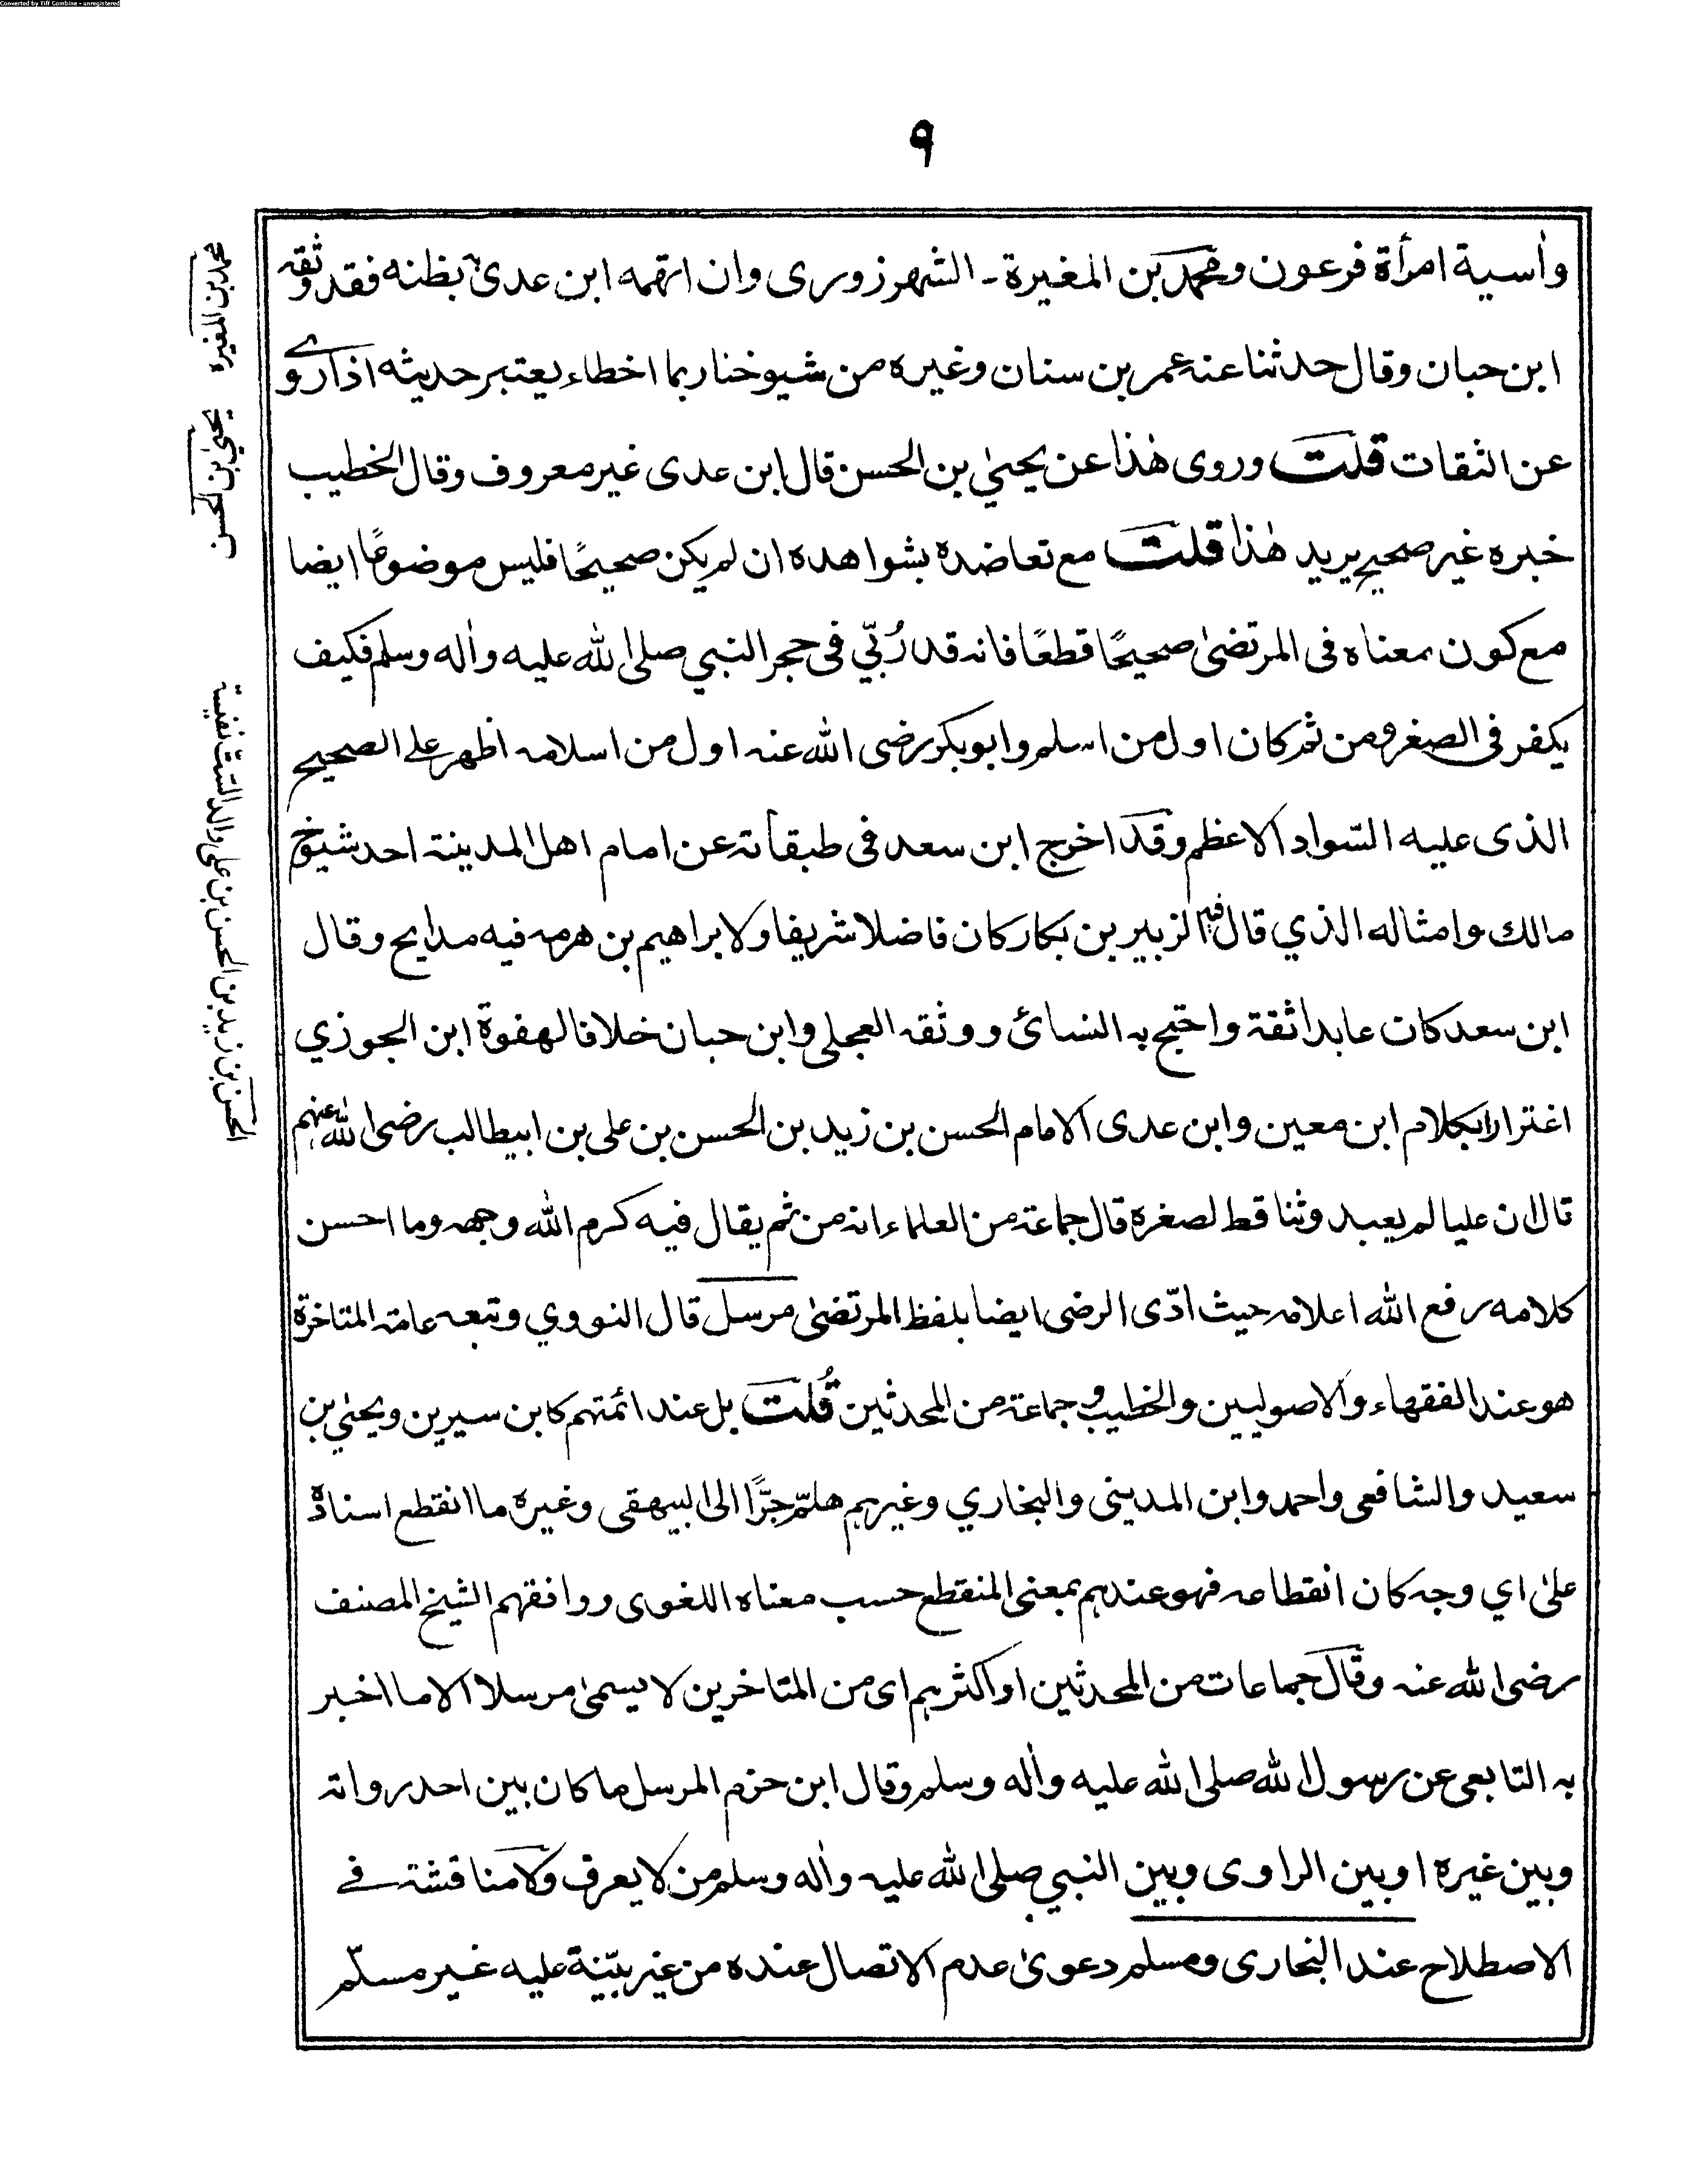 Converted by Tiff Combine - unregistered
٩
واٰسية امرأة فرعون ومحمد بن المغيرة ـ الشهرزورى وان اتهمه ابن عدى بظنه فقد وثقه
ابن حبان وقال حدثنا عنه عمر بن سنان وغيره من شيوخنا ربما اخطاء يعتبر حديثه اذا روے
عن الثقات قلت وروى هٰذا عن يحيىٰ بن الحسن قال ابن عدى غير معروف وقال الخطيب
خبره غير صحيح يريد هٰذا قلت مع تعاضده بشواهده ان لم يكن صحيحًا فليس موضوعًا ايضا
مع كون معناه فى المرتضىٰ صحيحًا قطعًا فانه قد رُبّي فى حجر النبي صلى الله عليه واٰله وسلم فكيف
يكفر فى الصغر ومن ثم كان اول من اسلم وابو بكر رضى الله عنه اول من اسلامه اظهر على الصحيح
الذى عليه السّواد الاعظم وقد اخرج ابن سعد فى طبقاته عن امام اهل المدينة احد شيوخ
مالك وامثاله الذي قال فيه الزبير بن بكار كان فاضلا شريفا ولابراهيم بن هرمه فيه مدايح وقال
ابن سعد كان عابدا ثقة واحتج به النسائ ووثقه العجلى وابن حبان خلافا لهفوة ابن الجوزي
اغترارا بكلام ابن معين وابن عدى الامام الحسن بن زيد بن الحسن بن على بن ابيطالب رضى الله عنهم
قال ان عليا لم يعبد وثنا قط لصغره قال جماعة من العلماء انه من ثم يقال فيه كرم الله وجهه وما احسن
كلامه رفع الله اعلامه حيث ادّى الرضى ايضا بلفظ المرتضىٰ مرسل قال النووي وتبعه عامة المتاخرة
هو عند الفقهاء والاصوليين والخطيب وجماعة من المحدثين قُلت بل عند ائمتهم كابن سيرين ويحيىٰ بن
سعيد والشافعى واحمد وابن المدينى والبخاري وغيرهم هلمّ جرًّا الى البيهقى وغيره ما انقطع اسناده
علىٰ اي وجه كان انقطاعه فهو عندهم بمعنى المنقطع حسب معناه اللغوى ووافقهم الشيخ المصنف
رضى الله عنه وقال جماعات من المحدثين او اكثرهم اى من المتاخرين لا يسمىٰ مرسلا الا ما اخبر
به التابعى عن رسول الله صلى الله عليه واٰله وسلم وقال ابن حزم المرسل ما كان بين احد رواته
وبين غيره او بين الراوى وبين النبي صلى الله عليه واٰله وسلم من لا يعرف ولا مناقشة فے
الاصطلاح عند البخارى ومسلم دعوىٰ عدم الاتصال عنده من غير بيّنة عليه غير مسلّم
محمد بن المغيره
يحيىٰ بن الحسن
الحسن بن زيد بن الحسن بن على والد السّت نفيسة